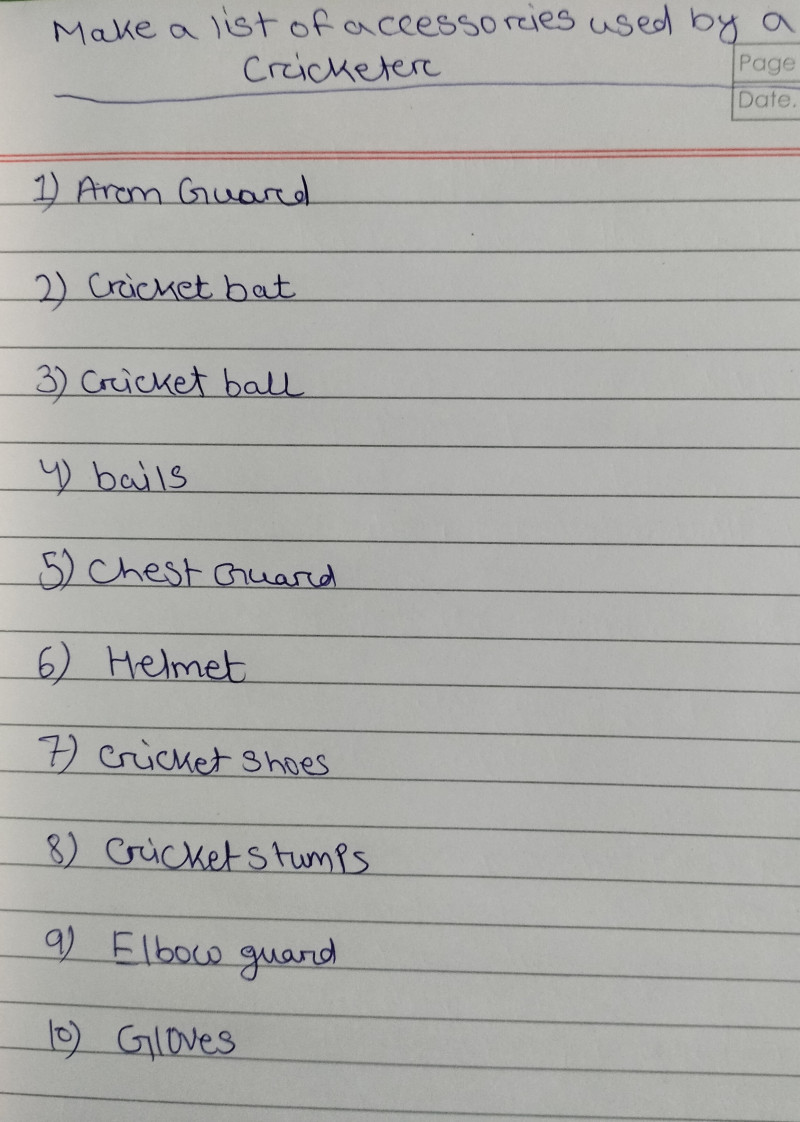 Make a list of accessories used by a
Cricketer
Page
Date.
1) Arm Guard
2) Cricket bat
3) Cricket ball
4) bails
5) Chest Guard
6) Helmet
7) Cricket shoes
8) Cricket stumps
9) Elbow guard
10) Gloves